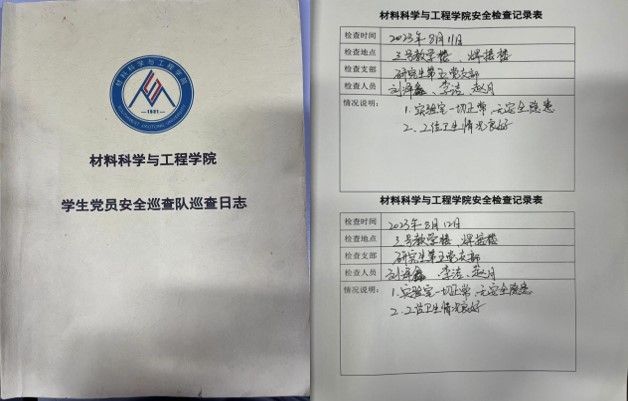 材料科学与工程学院
1921
材料科学与工程学院
学生党员安全巡查队巡查日志
材料科学与工程学院安全检查记录表
检查时间 2023年8月11日
检查地点 三号教学楼、焊接楼
检查支部 研究生第五党支部
检查人员 李洁、赵月
情况说明: 1.实验室一切正常,无安全隐患
2.工位卫生情况良好
材料科学与工程学院安全检查记录表
检查时间 2023年8月12日
检查地点 三号教学楼、焊接楼
检查支部 研究生第五党支部
检查人员 李洁、赵月
情况说明: 1.实验室一切正常、无安全隐患
2.工位卫生情况良好